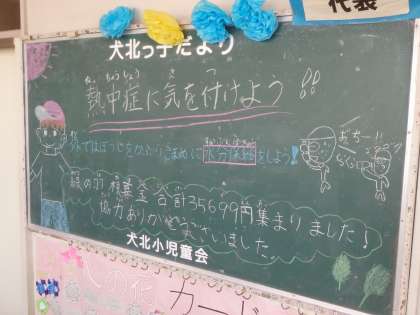 代表
犬北っ子だより
熱中症に気を付けよう!!
ねっちゅうしょう き つ
外ではぼうしをかぶり、こまめに水分補給をしよう!
あちー!!
緑の羽根募金合計35699円集まりました!
協力ありがとうございました
犬北小児童会
カード